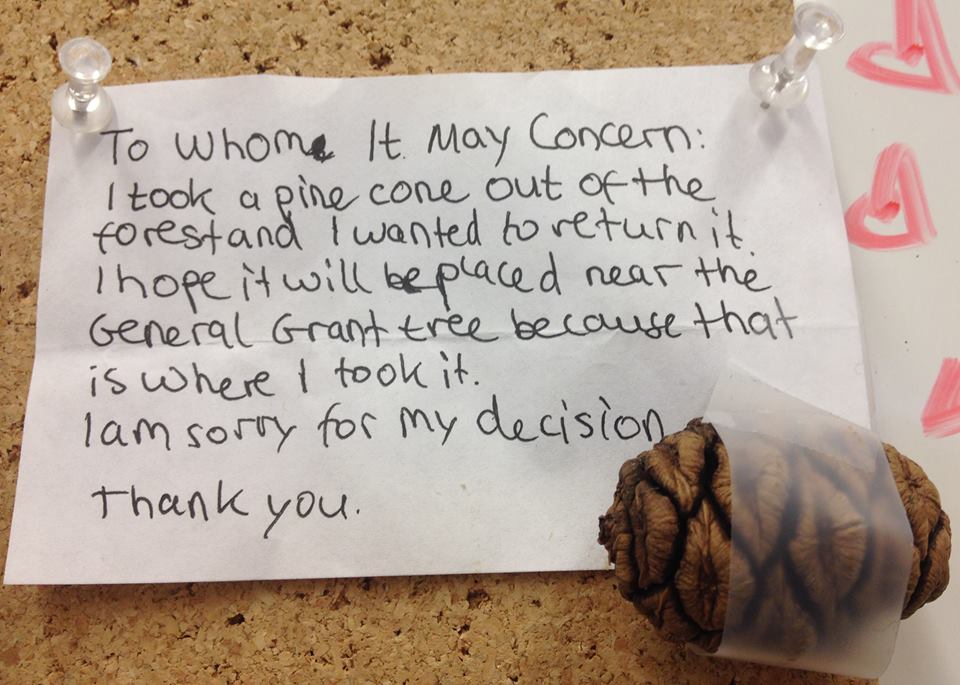 To Whom It May Concern:
I took a pine cone out of the
forest and I wanted to return it.
I hope it will be placed near the
General Grant tree because that
is where I took it.
I am sorry for my decision
Thank you.